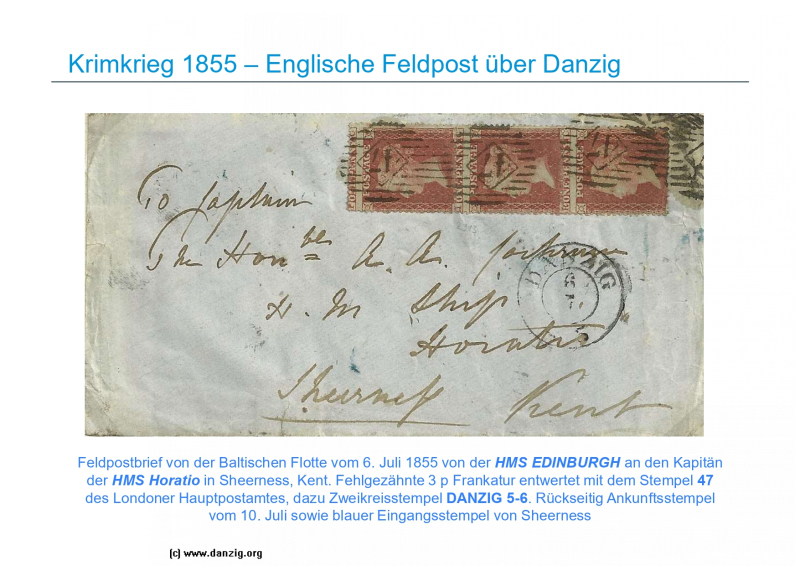 Krimkrieg 1855 – Englische Feldpost über Danzig
47 47 47
To Captain
The Hon ble A. A. Cochrane
DANZIG
6
7
H. M Ship
Horatio
Sheerness Kent
Feldpostbrief von der Baltischen Flotte vom 6. Juli 1855 von der HMS EDINBURGH an den Kapitän
der HMS Horatio in Sheerness, Kent. Fehlgezähnte 3 p Frankatur entwertet mit dem Stempel 47
des Londoner Hauptpostamtes, dazu Zweikreisstempel DANZIG 5-6. Rückseitig Ankunftsstempel
vom 10. Juli sowie blauer Eingangsstempel von Sheerness
(c) www.danzig.org